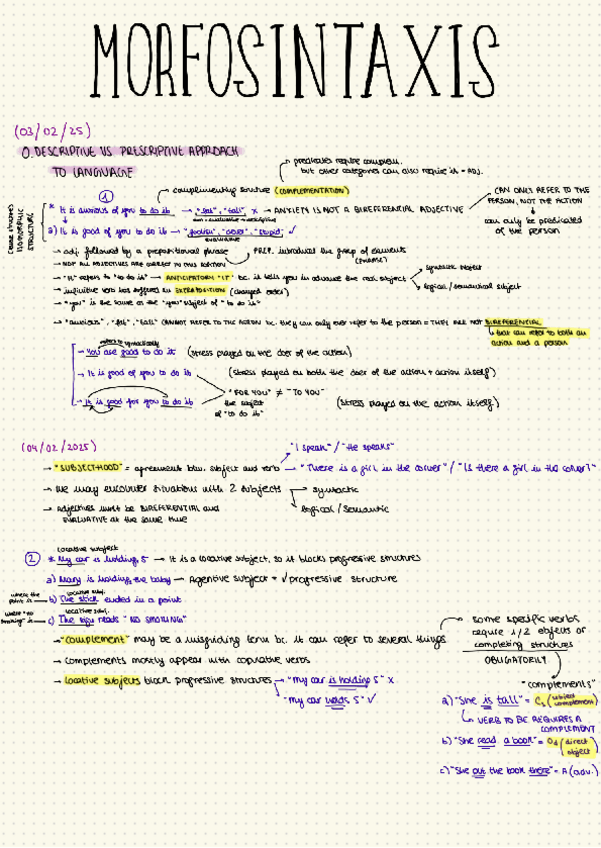 MORFOSINTAXIS
(03/02/25)
0. DESCRIPTIVE VS PRESCRIPTIVE APPROACH
TO LANGUAGE
predicates require complem.
but other categories can also require it = ADJ.
①
complementing structure (COMPLEMENTATION)
* It is anxious of you to do it → "fat", "tall" x → ANXIETY IS NOT A BIREFERENTIAL ADJECTIVE
CAN ONLY REFER TO THE
PERSON, NOT THE ACTION
can only be predicated
of the person
ISOMORPHIC
STRUCTURE
a) It is good of you to do it → "foolish", "clever", "stupid" ✓
evaluative
→ adj. followed by a prepositional phrase
PREP. introduces the group of elements
(PHRASE)
→ NOT ALL ADJECTIVES ARE in this position
→ "It" refers to "to do it" → ANTICIPATORY "IT" bc. it tells you in advance the real subject
syntactic subject
logical/semantical subject
→ infinitive verb has suffered an EXTRAPOSITION (changed order)
→ "you" is the same as the "you" subject of "to do it"
→ "anxious", "fat", "tall" CANNOT REFER TO THE ACTION bc. they can only ever refer to the person = THEY ARE NOT BIREFERENTIAL
that can refer to both an
action and a person
→ You are good to do it (stress played on the doer of the action)
→ It is good of you to do it (stress played on both the doer of the action + action itself)
"FOR YOU" ≠ "TO YOU"
→ It is good for you to do it (stress played on the action itself)
the subject
of "to do it"
(04/02/2025)
"I speak" / "He speaks"
→ "SUBJECTHOOD" = agreement btw. subject and verb → "There is a girl in the corner" / "Is there a girl in the corner?"
→ We may encounter situations with 2 subjects
syntactic
logical / semantic
→ Adjectives must be BIREFERENTIAL and
EVALUATIVE at the same time
Locative subject
② * My car is holding 5 → It is a locative subject, so it blocks progressive structures
a) Mary is holding the baby → Agentive subject = ✓ progressive structure
where the
point is
locative subj.
b) The stick ended in a point
where "no
smoking" is
locative subj.
c) The sign reads "NO SMOKING"
→ "complement" may be a misguiding term bc. it can refer to several things
→ Complements mostly appear with copulative verbs
→ Locative subjects block progressive structures
"My car is holding 5" x
"My car holds 5" ✓
some specific verbs
require 1/2 objects or
completing structures
OBLIGATORILY
"complements"
a) "She is tall" = Cs (subject
complement)
VERB TO BE REQUIRES A
COMPLEMENT
b) "She read a book" = Od (direct
object)
c) "She put the book there" = A (adv.)